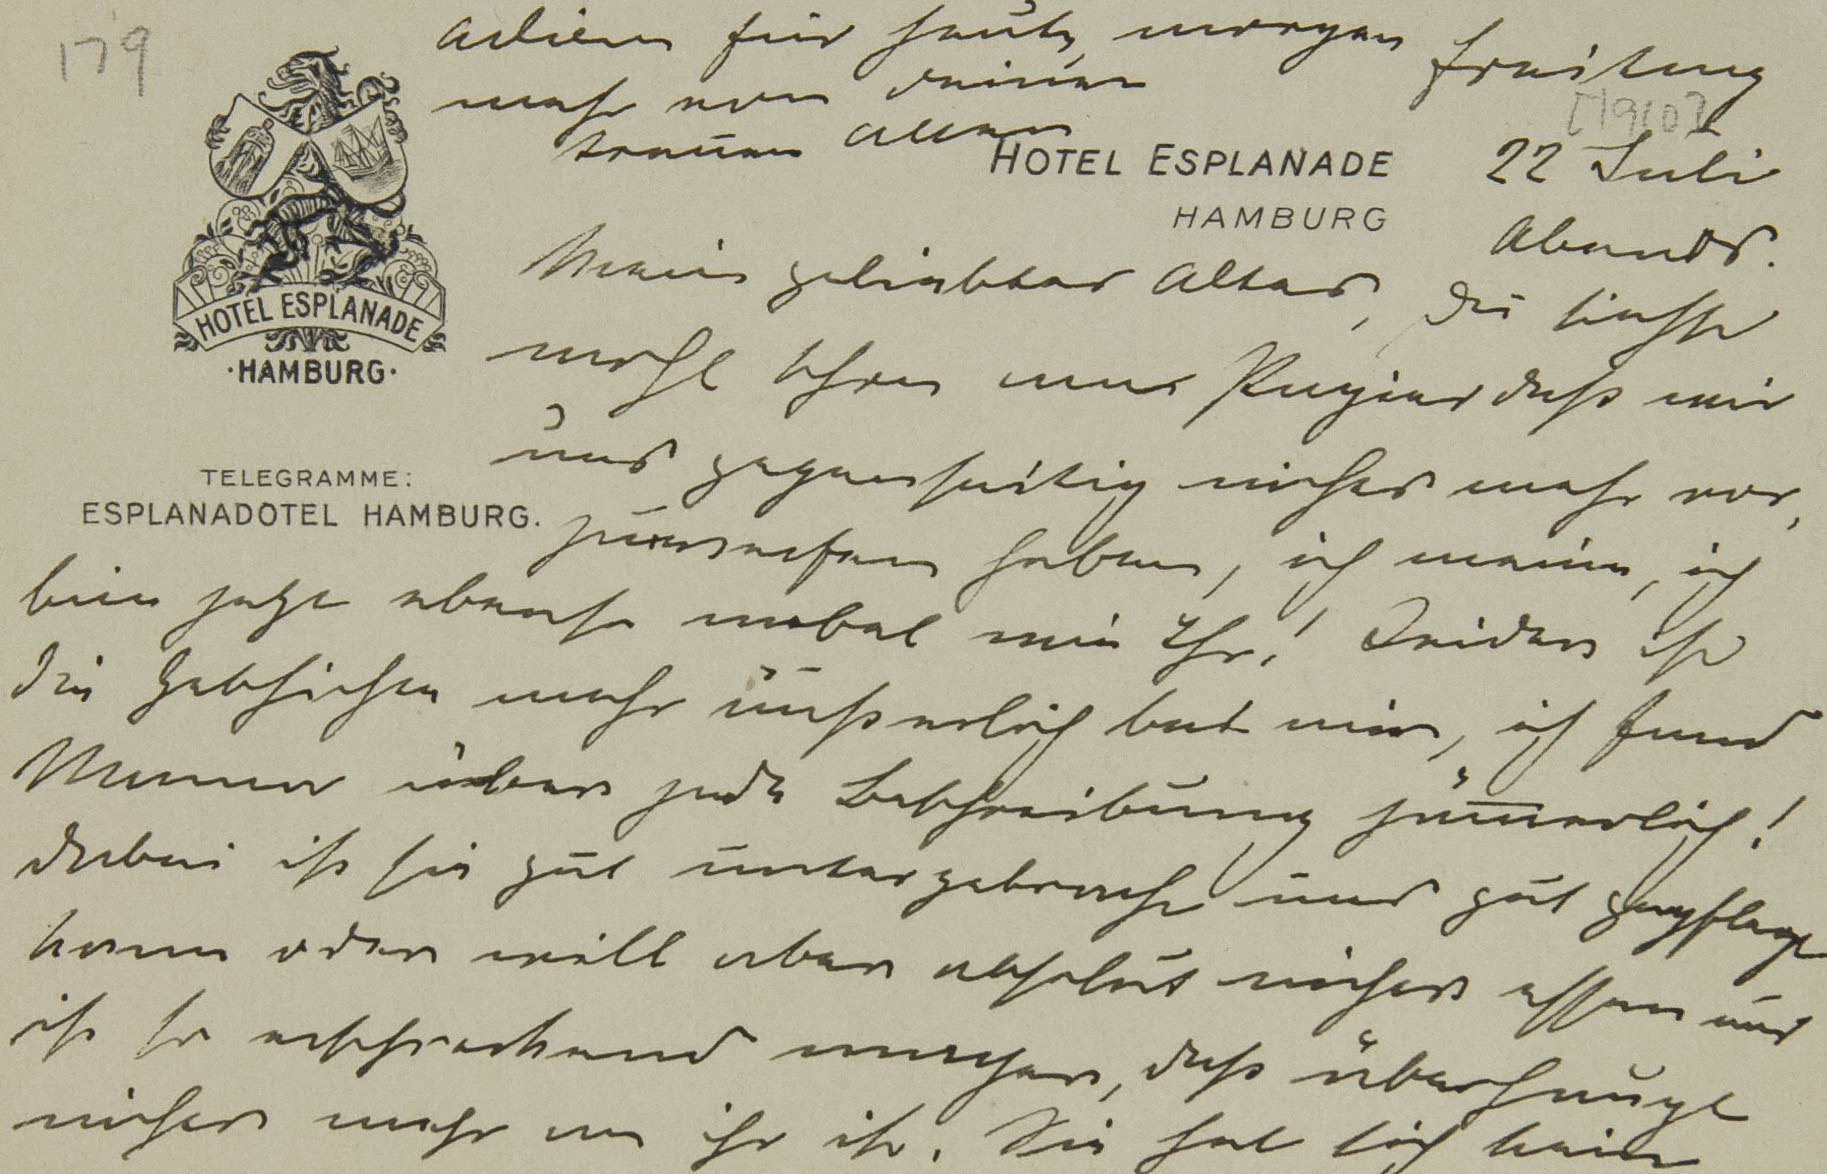 179
Adieu für heute, morgen
mehr von Deinem
treuen Alten
Freitag
[1910]
HOTEL ESPLANADE
HAMBURG
22 Juli
Abends.
HOTEL ESPLANADE
·HAMBURG·
TELEGRAMME:
ESPLANADOTEL HAMBURG.
Mein geliebter Alter, Du siehst
wohl schon am Papier daß wir
uns gegenseitig nichts mehr vor,
zuwerfen haben, ich meine, ich
bin jetzt ebenso nobel wie Ihr! Leider ist
die Geschichte mehr äußerlich bei mir, ich fand
Mama über jede Beschreibung jämmerlich!
Dabei ist sie gut untergebracht und gut gepflegt
kann oder will aber absolut nichts essen und
ist so erschreckend mager, daß überhaupt
nichts mehr an ihr ist. Sie hat sich